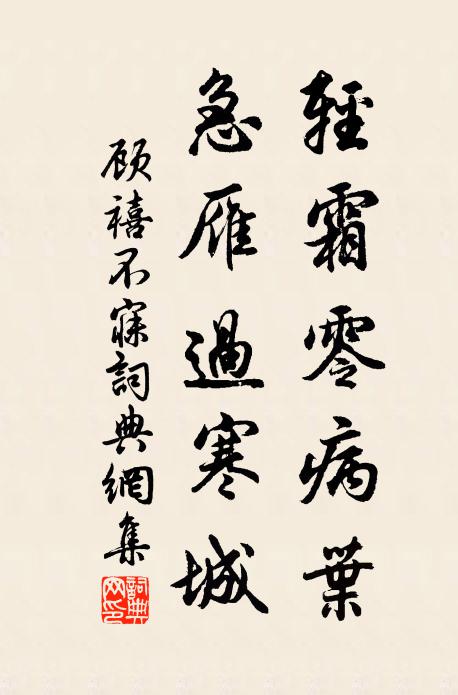 輕霜零病葉
急雁過寒城
顾禧不寐詞典網集
詞典網印